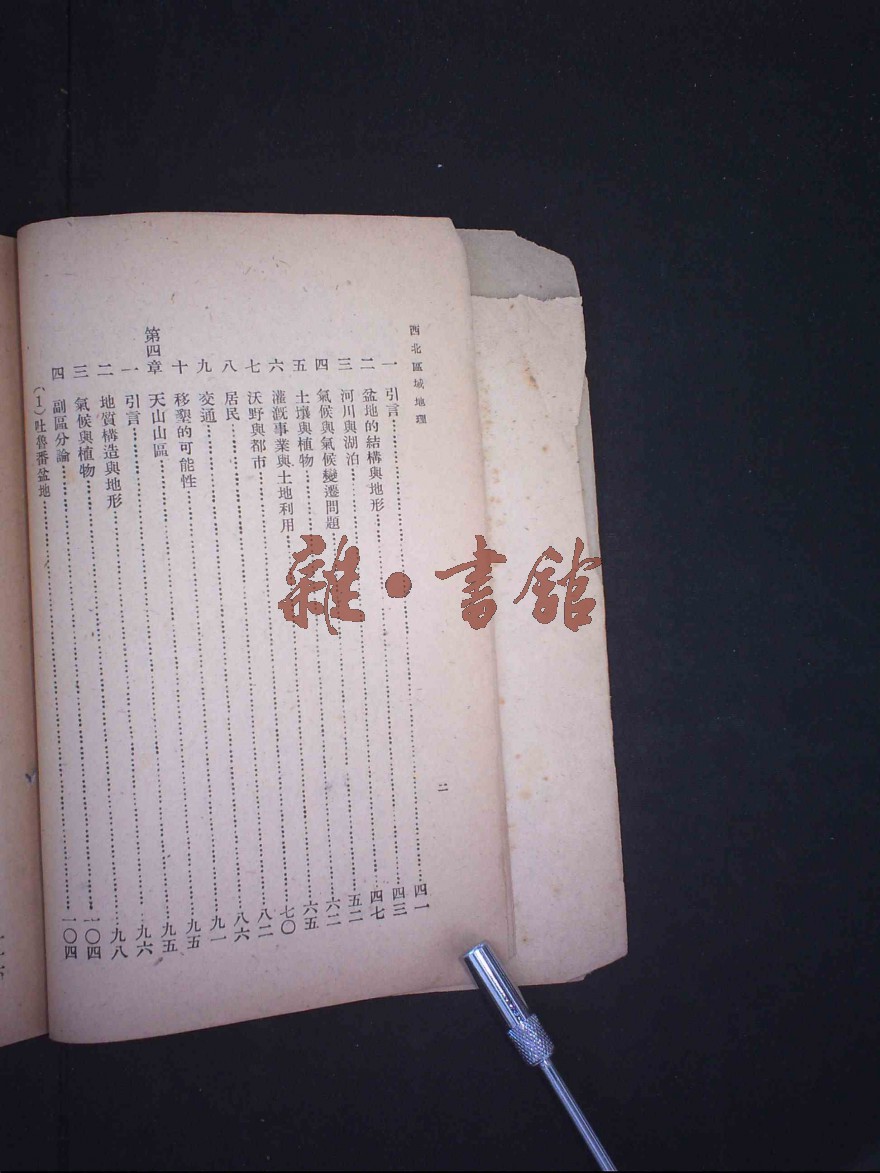 西北區域地理
二
一 引言……四一
二 盆地的結構與地形……四三
三 河川與湖泊……四七
四 氣候與氣候變遷問題……五二
五 土壤與植物……六二
六 灌漑事業與土地利用……六五
七 沃野與都市……七〇
八 居民……八二
九 交通……八六
十 移墾的可能性……九一
第四章 天山山區……九五
一 引言……九五
二 地質構造與地形……九六
三 氣候與植物……九八
四 副區分論……一〇四
(1)吐魯番盆地……一〇四
雜·書館